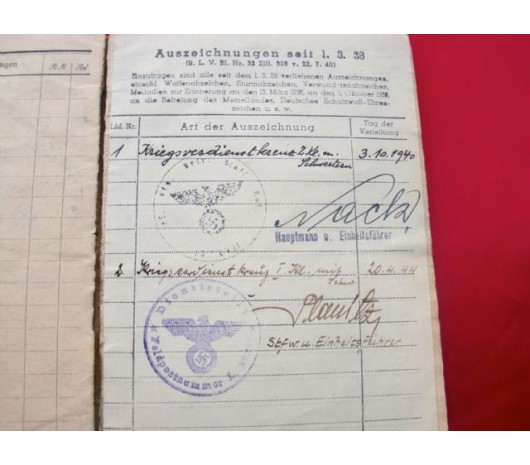 ngen
R.R.
Rel
Auszeichnungen seit 1. 3. 38
(z. L. V. Bl. Nr. 32 Ziff. 928 v. 22. 7. 40)
Einzutragen sind alle seit dem 1. 3. 38 verliehenen Auszeichnungen,
einschl. Waffenabzeichen, Sturmabzeichen, Verwundetenabzeichen,
Medaillen zur Erinnerung an den 13. März 1938, an den 1. Oktober 1938,
an die Befreiung des Memellandes, Deutsches Schutzwall-Ehren-
zeichen u. s. w.
Lfd. Nr.
Art der Auszeichnung
Tag der
Verleihung
1 Kriegsverdienstkreuz 2. Kl. m. 3.10.1940
Schwertern
Hauptmann u. Einheitsführer
2 Kriegsverdienstkreuz I. Kl. mit 20.4.44
Schw.
Stfw. u. Einheitsführer
Feldpostnummer L